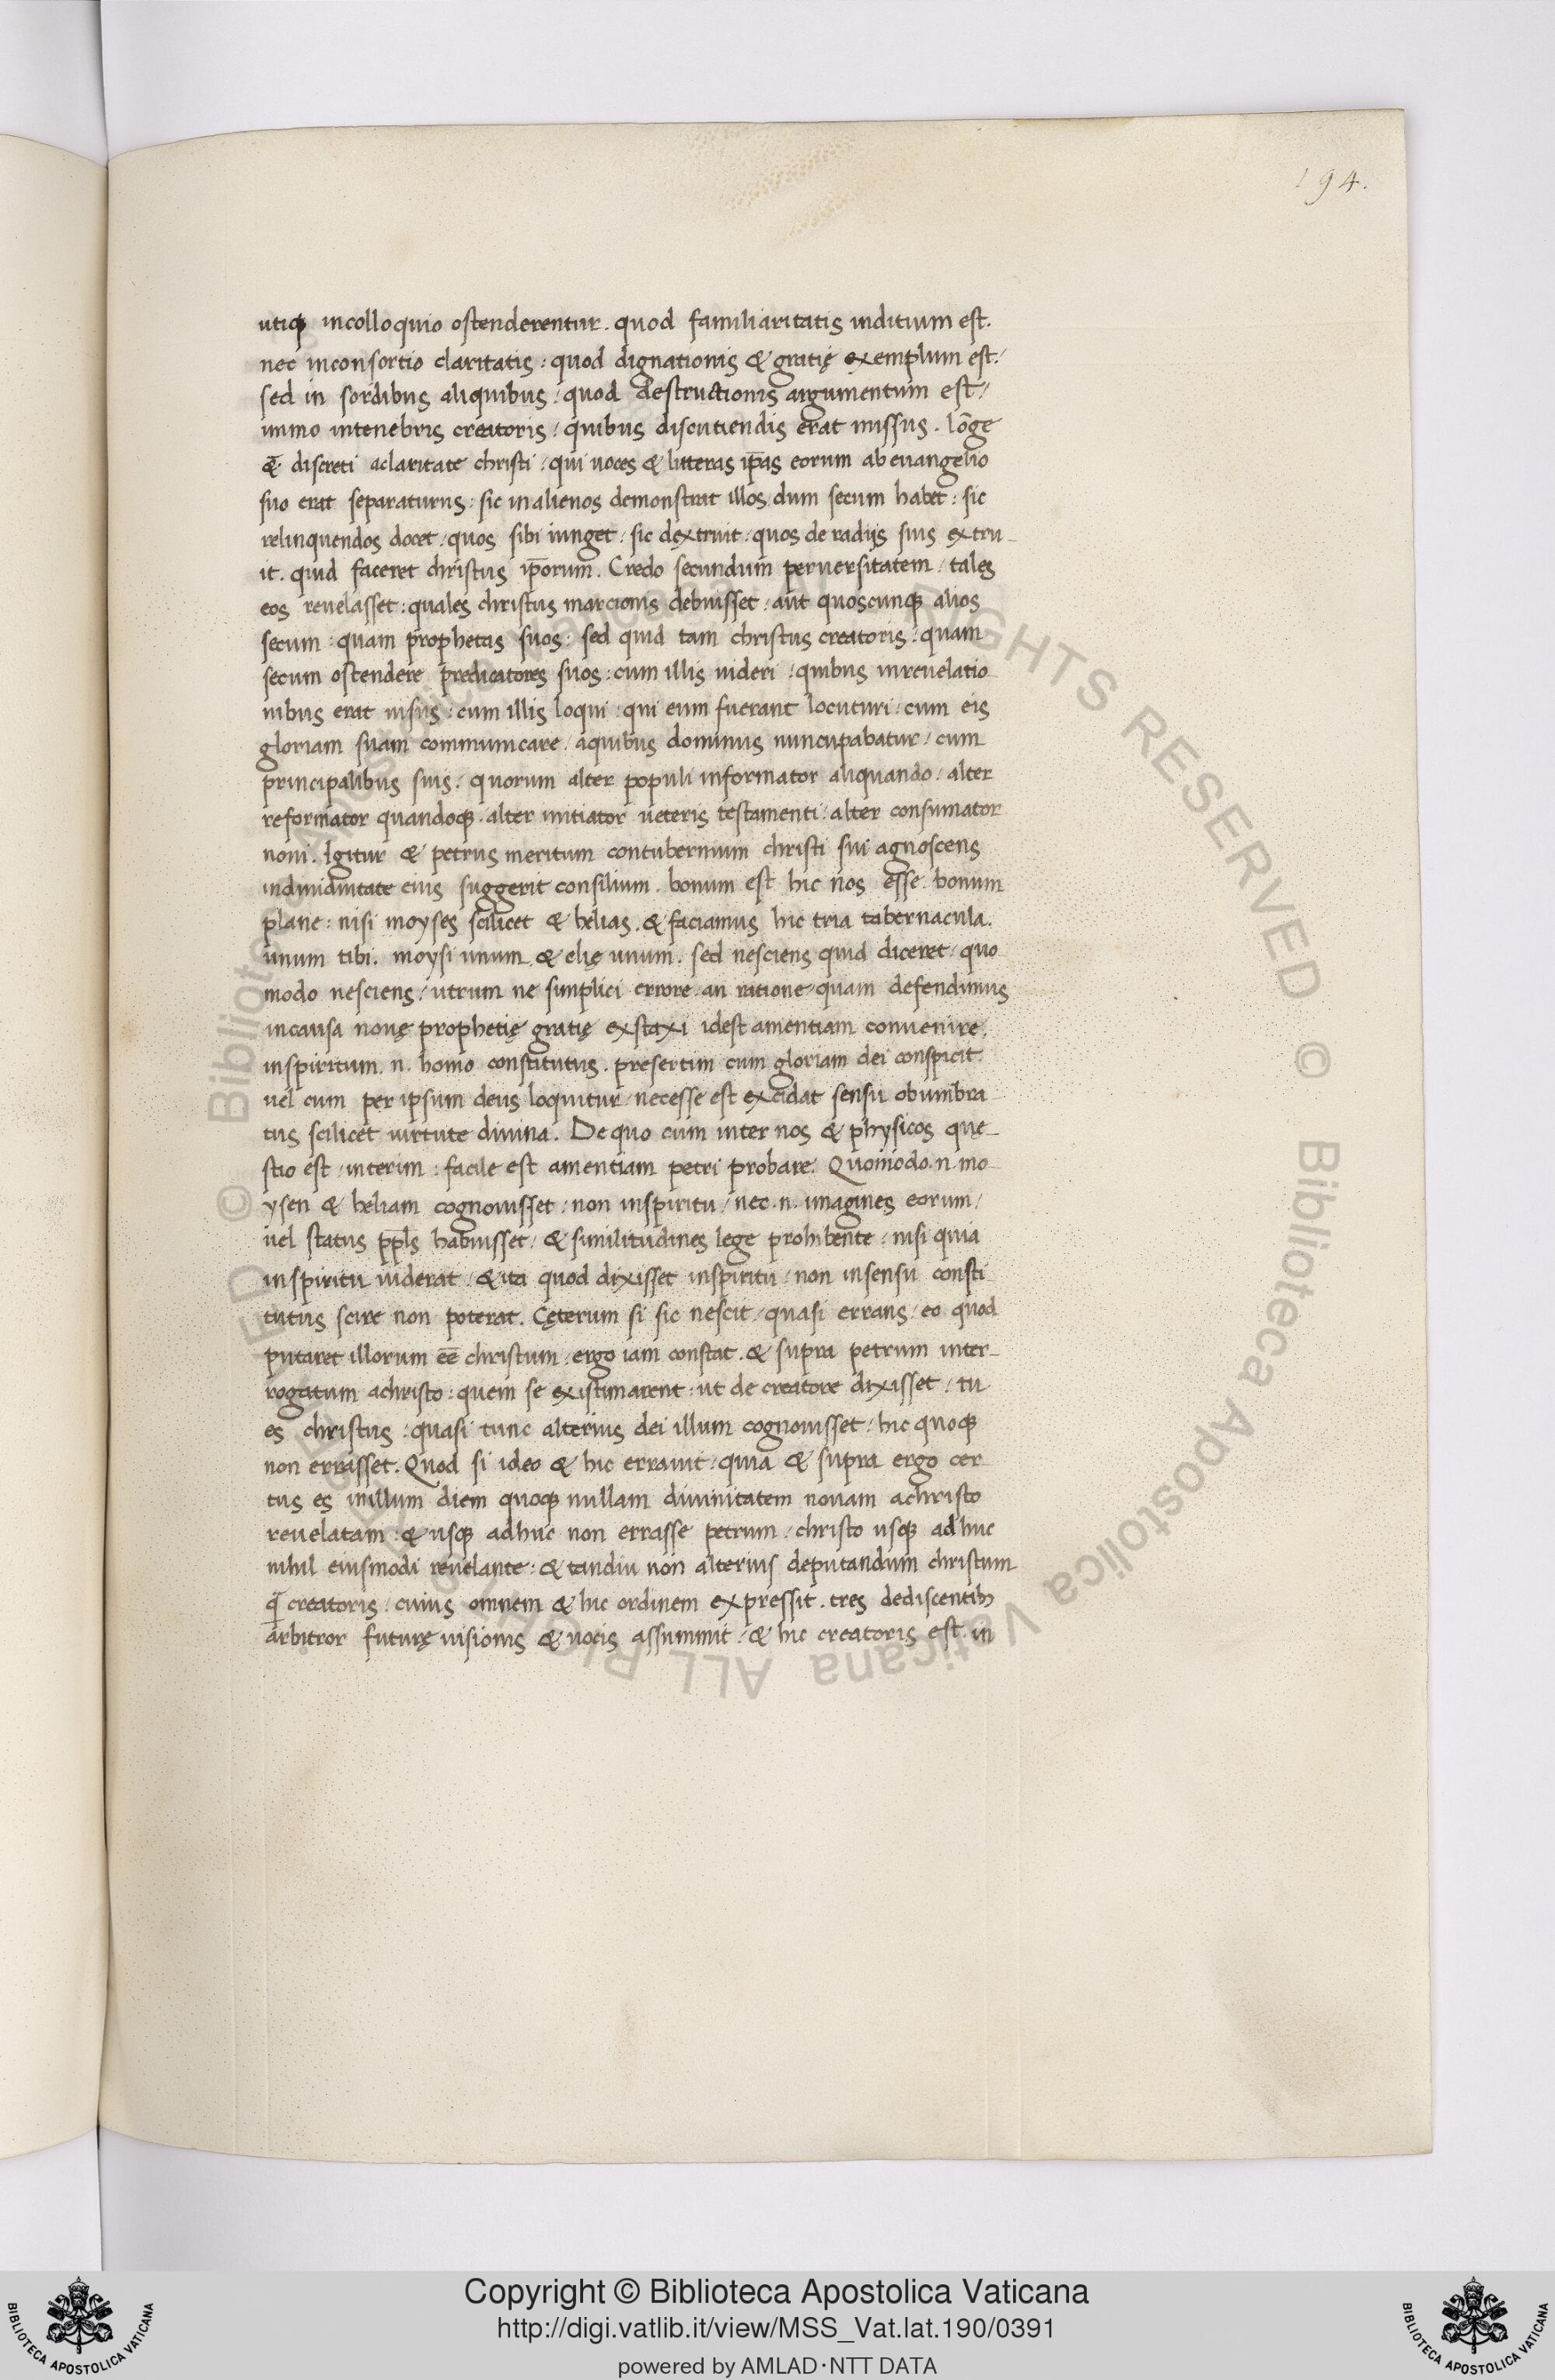 194.
utiqꝫ incolloquio ostenderentur. quod familiaritatis inditium est.
nec inconsortio claritatis: quod dignationis & gratię exemplum est:
sed in sordibus aliquibus: quod destructionis argumentum est/
immo intenebris creatoris: quibus discutiendis erat missus. lōge
& discreti aclaritate christi: qui uoces & litteras ip̄as eorum ab euangelio
suo erat separaturus: sic in alienos demonstrat illos dum secum habet: sic
relinquendos docet: quos sibi iunget: sic dextruit: quos de radijs suis extru-
it. quid faceret christus ip̄orum. Credo secundum peruersitatem: tales
eos reuelasset: quales christus marcionis debuisset: aut quoscunqꝫ alios
secum: quam prophetas suos: sed quid tam christus creatoris: quam
secum ostendere predicatores suos: cum illis uideri: quibus inreuelatio
nibus erat uisus: cum illis loqui: qui eum fuerant locuturi: cum eis
gloriam suam communicare: aquibus dominus nuncupabatur: cum
principalibus suis: quorum alter populi informator aliquando: alter
reformator quandoqꝫ. alter initiator ueteris testamenti: alter consumator
noui. Igitur & petrus meritum contubernium christi sui agnoscens
indiuiduitate eius suggerit consilium. bonum est hic nos esse. bonum
plane: nisi moyses scilicet & helias. & faciamus hic tria tabernacula.
unum tibi. moysi unum & elię unum. sed nesciens quid diceret: quo
modo nesciens: utrum ne simplici errore: an ratione: quam defendimus
incausa nouę prophetię gratię exstaxi idest amentiam conuenire.
inspiritum. n. homo constitutus. presertim cum gloriam dei conspicit
uel cum per ipsum deus loquitur: necesse est excidat sensu obumbra
tus scilicet uirtute diuina. De quo cum inter nos & physicos que-
stio est: interim: facile est amentiam petri probare. Quomodo. n. mo-
ysen & heliam cognouisset: non inspiritu: nec. n. imagines eorum/
uel status pp̄ls habuisset: & similitudines lege prohibente: nisi quia
inspiritu uiderat: & ita quod dixisset inspiritu: non insensu consti
tutus scire non poterat. Cęterum si sic nescit: quasi errans: eo quod
putaret illorum eē christum: ergo iam constat. & supra petrum inter-
rogatum achristo: quem se existimarent: ut de creatore dixisset: tu
es christus: quasi tunc alterius dei illum cognouisset: hic quoqꝫ
non errasset. Quod si ideo & hic errauit: quia & supra ergo cer
tus es inillum diem quoqꝫ nullam diuinitatem nouam achristo
reuelatam: & usqꝫ adhuc non errasse petrum: christo usqꝫ adhuc
nihil eiusmodi reuelante: & tandiu non alterius deputandum christum
q̄ creatoris: cuius omnem & hic ordinem expressit. tres dediscentibꝫ
arbitror futurę uisionis & uocis assummit: & hic creatoris est. in
Copyright © Biblioteca Apostolica Vaticana
http://digi.vatlib.it/view/MSS_Vat.lat.190/0391
powered by AMLAD·NTT DATA
BIBLIOTECA APOSTOLICA VATICANA
BIBLIOTECA APOSTOLICA VATICANA
© Biblioteca Apostolica Vaticana ALL RIGHTS RESERVED